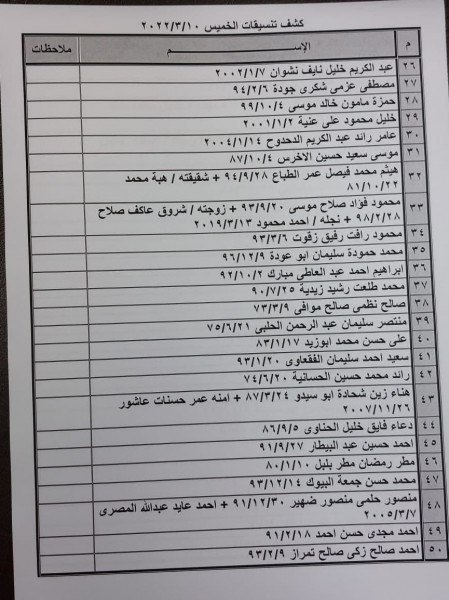 كشف تنسيقات الخميس ٢٠٢٢/٣/١٠
م الإســــــــــم ملاحظات
٢٦ عبد الكريم خليل نايف نشوان ٢٠٠٢/١/٧
٢٧ مصطفى عزمى شكرى جودة ٩٤/٢/٦
٢٨ حمزة مامون خالد موسى ٩٩/١٠/٤
٢٩ خليل محمود على عنية ٢٠٠١/١/٢
٣٠ عامر رائد عبد الكريم الدحدوح ٢٠٠٤/١/١٤
٣١ موسى سعيد حسين الاخرس ٨٧/١٠/٤
٣٢ هيثم محمد فيصل عمر الطباع ٩٤/٩/٢٨ + شقيقته / هبة محمد
٨١/١٠/٢٢
٣٣ محمود فؤاد صلاح موسى ٩٣/٩/٢٠ + زوجته / شروق عاكف صلاح
٩٨/٢/٢٨ + نجله / احمد محمود ٢٠١٩/٣/١٣
٣٤ محمود رافت رفيق زقوت ٩٣/٣/٦
٣٥ محمد حمودة سليمان ابو عودة ٩٦/١٢/٩
٣٦ ابراهيم احمد عبد العاطى مبارك ٩٢/١٠/٢
٣٧ محمد طلعت رشيد زيدية ٩٠/٧/٢٥
٣٨ صالح نظمى صالح موافى ٧٣/٣/٩
٣٩ منتصر سليمان عبد الرحمن الحلبى ٧٥/٦/٢١
٤٠ على حسن محمد ابوزيد ٨٣/١/١٧
٤١ سعيد احمد سليمان الفقعاوى ٩٣/١/٢٠
٤٢ رائد محمد حسين الحسانية ٧٤/٦/٢٠
٤٣ هناء زين شحادة ابو سيدو ٨٧/٣/٢٤ + امنه عمر حسنات عاشور
٢٠٠٧/١١/٢٦
٤٤ دعاء فايق خليل الحناوى ٨٦/٩/٥
٤٥ احمد حسين عبد البيطار ٩١/٩/٢٧
٤٦ مطر رمضان مطر بلبل ٨٠/١/١٠
٤٧ محمد حسن جمعة البيوك ٩٣/١٢/١٤
٤٨ منصور حلمى منصور ضهير ٩١/١٢/٣٠ + احمد عايد عبدالله المصرى
٢٠٠٥/٣/٧
٤٩ احمد مجدى حسن احمد ٩١/٢/١٨
٥٠ احمد صالح زكى صالح تمراز ٩٣/٢/٩